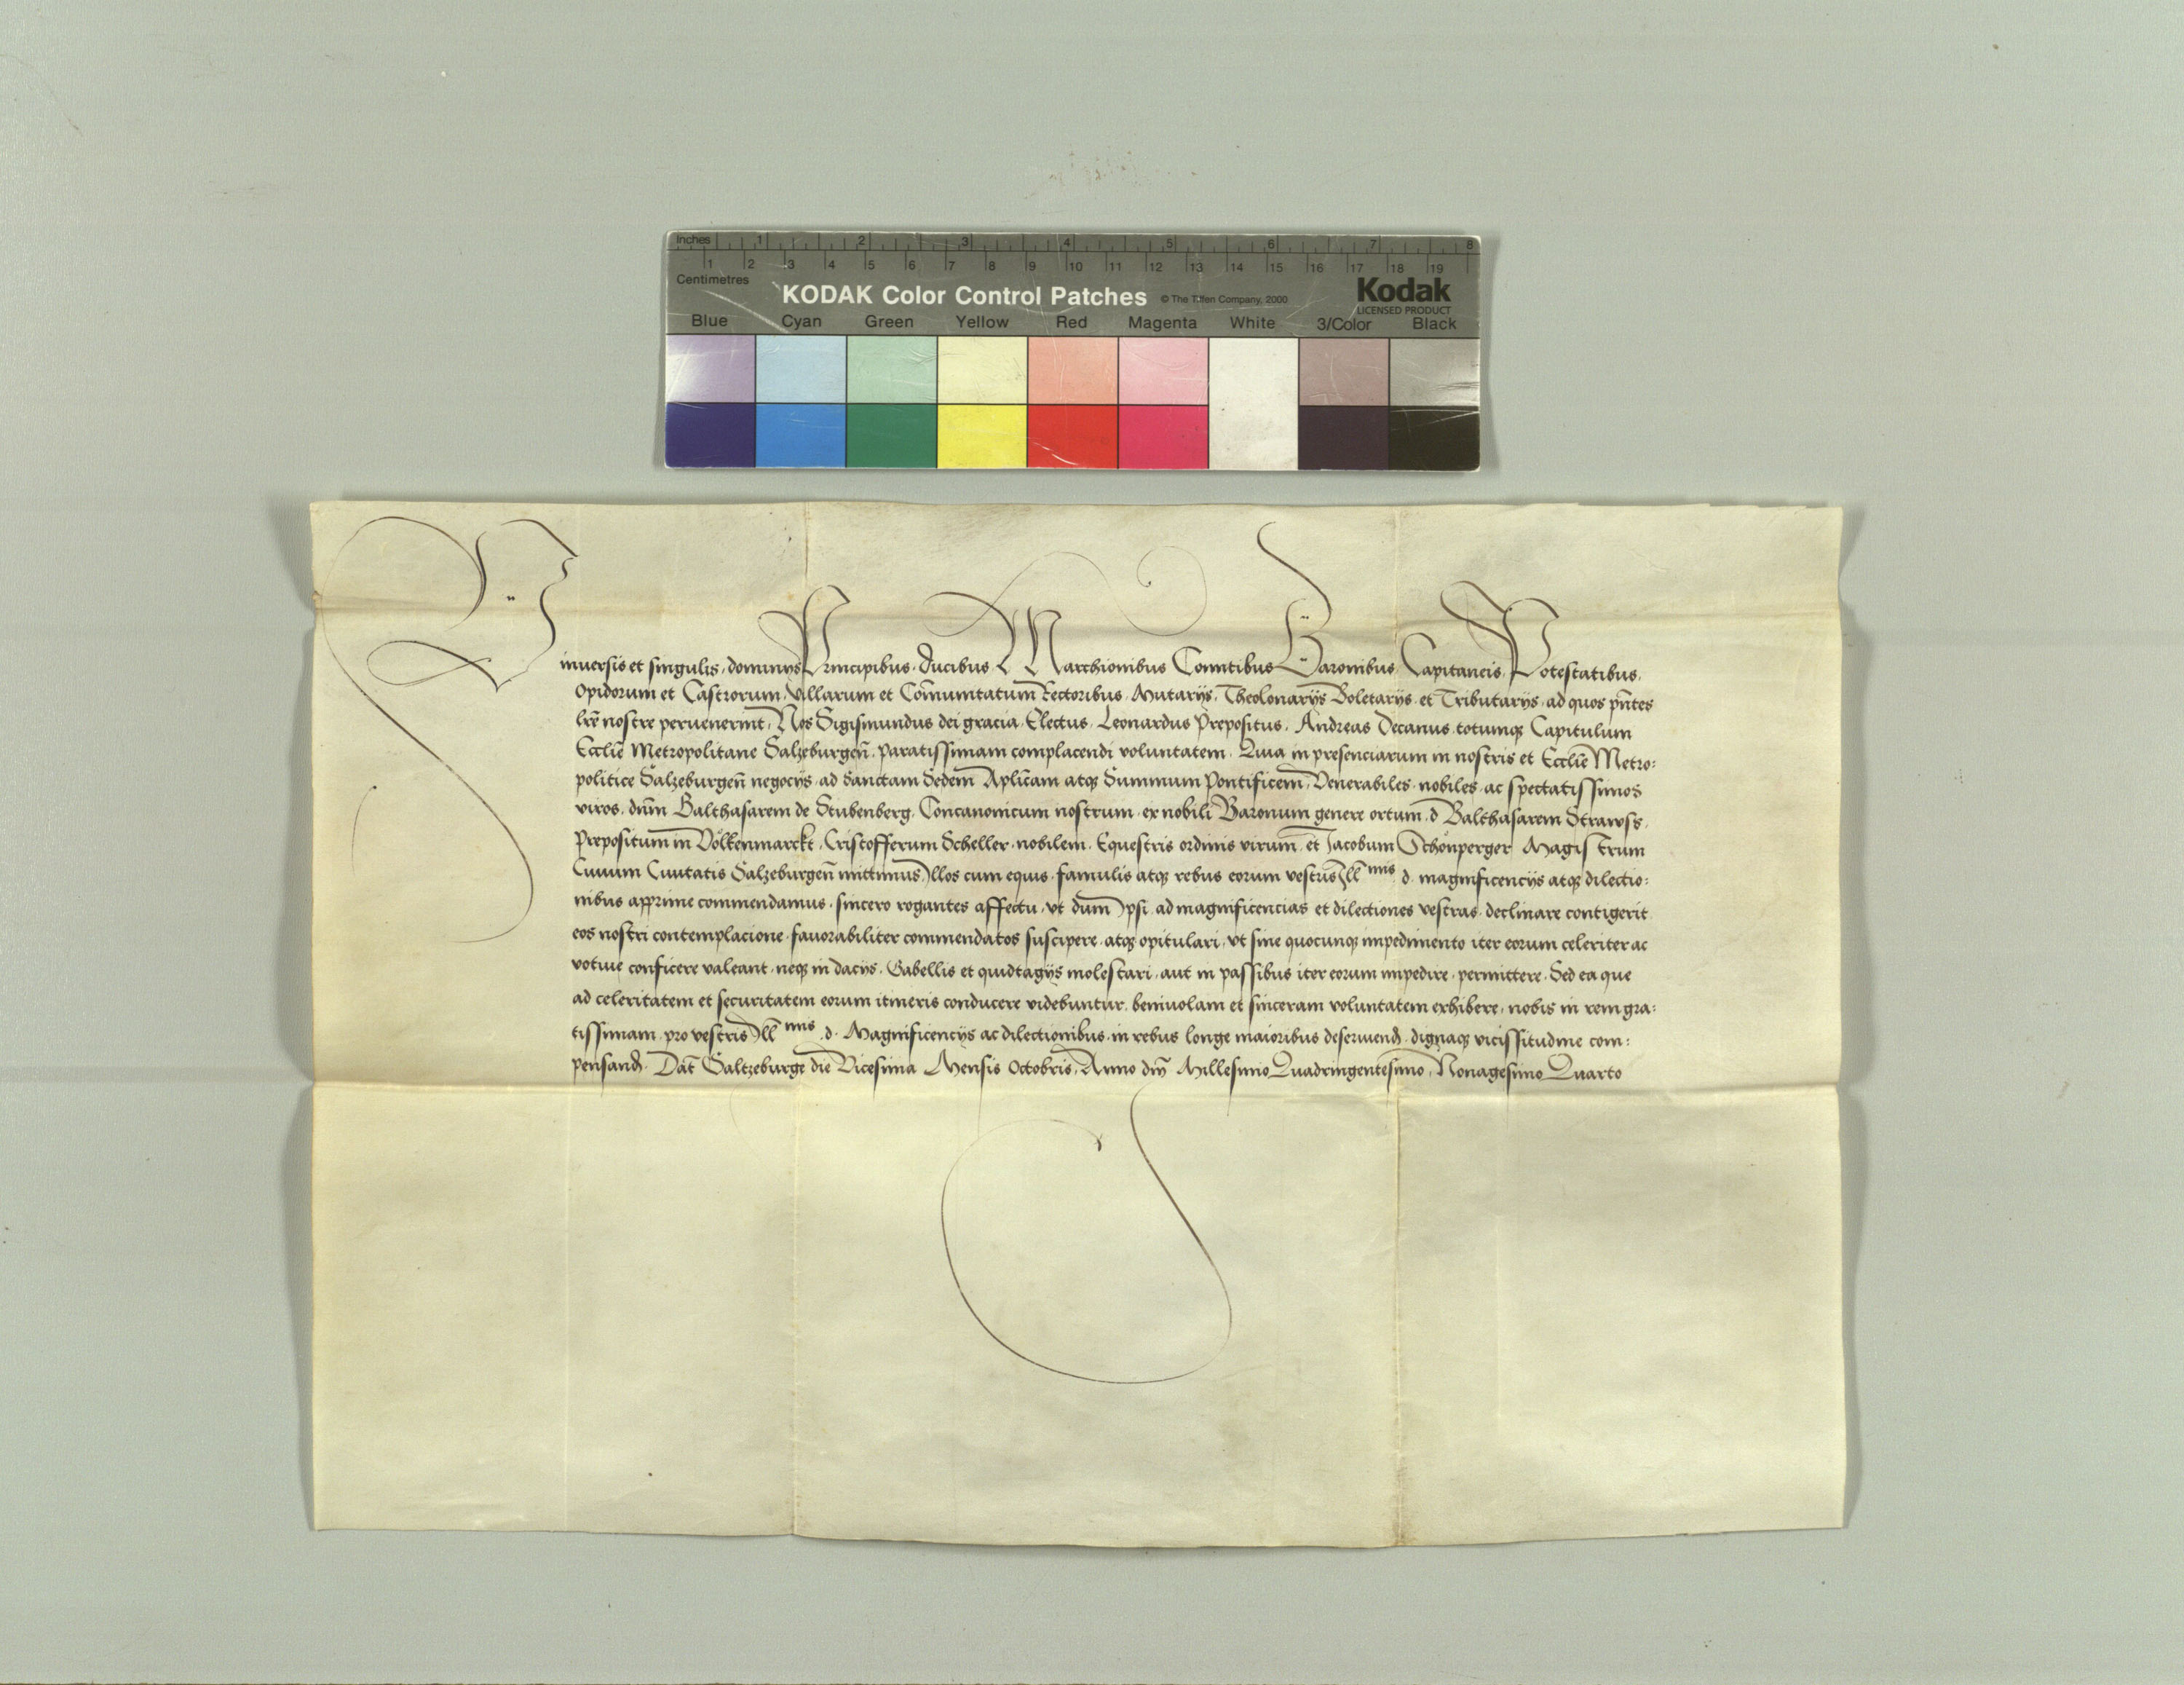 Inches 1 2 3 4 5 6 7 8
1 2 3 4 5 6 7 8 9 10 11 12 13 14 15 16 17 18 19
Centimetres
KODAK Color Control Patches © The Tiffen Company, 2000 Kodak
LICENSED PRODUCT
Blue Cyan Green Yellow Red Magenta White 3/Color Black
Vniuersis et singulis dominijs Principibus Ducibus Marchionibus Comitibus Baronibus Capitaneis Potestatibus
Opidorum et Castrorum Villarum et Com̄unitatum Rectoribus Mutarijs Theolonarijs Boletarijs et Tributarijs ad quos pn̄tes
lrē nostre peruenerint Nos Sigismundus dei gracia Electus Leonardus Prepositus Andreas Decanus totumq3 Capitulum
Eccliē Metropolitane Salzeburgen̄ paratissimam complacendi voluntatem Quia in presenciarum in nostris et Eccliē Metro:
politice Salzeburgen̄ negocijs ad Sanctam Sedem Aplicam̄ atq3 Summum Pontificem Venerabiles nobiles ac spectatissimos
viros dn̄m Balthasarem de Stubenberg Concanonicum nostrum ex nobili Baronum genere ortum d Balthasarem Strawss
Prepositum in Völkenmarckt Cristofferum Scheller nobilem Equestris ordinis virum et Jacobum Schönperger Magistrum
Ciuium Ciuitatis Salzeburgen̄ mittimus Illos cum equis famulis atq3 rebus eorum vestris Ill mis d magnificencijs atq3 dilectio:
nibus apprime commendamus sincero rogantes affectu vt dum Ipsi ad magnificencias et dilectiones vestras declinare contigerit
eos nostri contemplacione fauorabiliter commendatos suscipere atq3 opitulari vt sine quocunq3 impedimento iter eorum celeriter ac
votiue conficere valeant neq3 in dacijs Gabellis et quidtagijs molestari aut in passibus iter eorum impedire permittere Sed ea que
ad celeritatem et securitatem eorum itineris conducere videbuntur beniuolam et sinceram voluntatem exhibere nobis in rem gra:
tissimam pro vestris Ill mis d Magnificencijs ac dilectionibus in rebus longe maioribus deseruend dignaq3 vicissitudine com:
pensand Dat̄ Saltzeburge die Vicesima Mensis Octobris Anno dnī Millesimo Quadringentesimo Nonagesimo Quarto